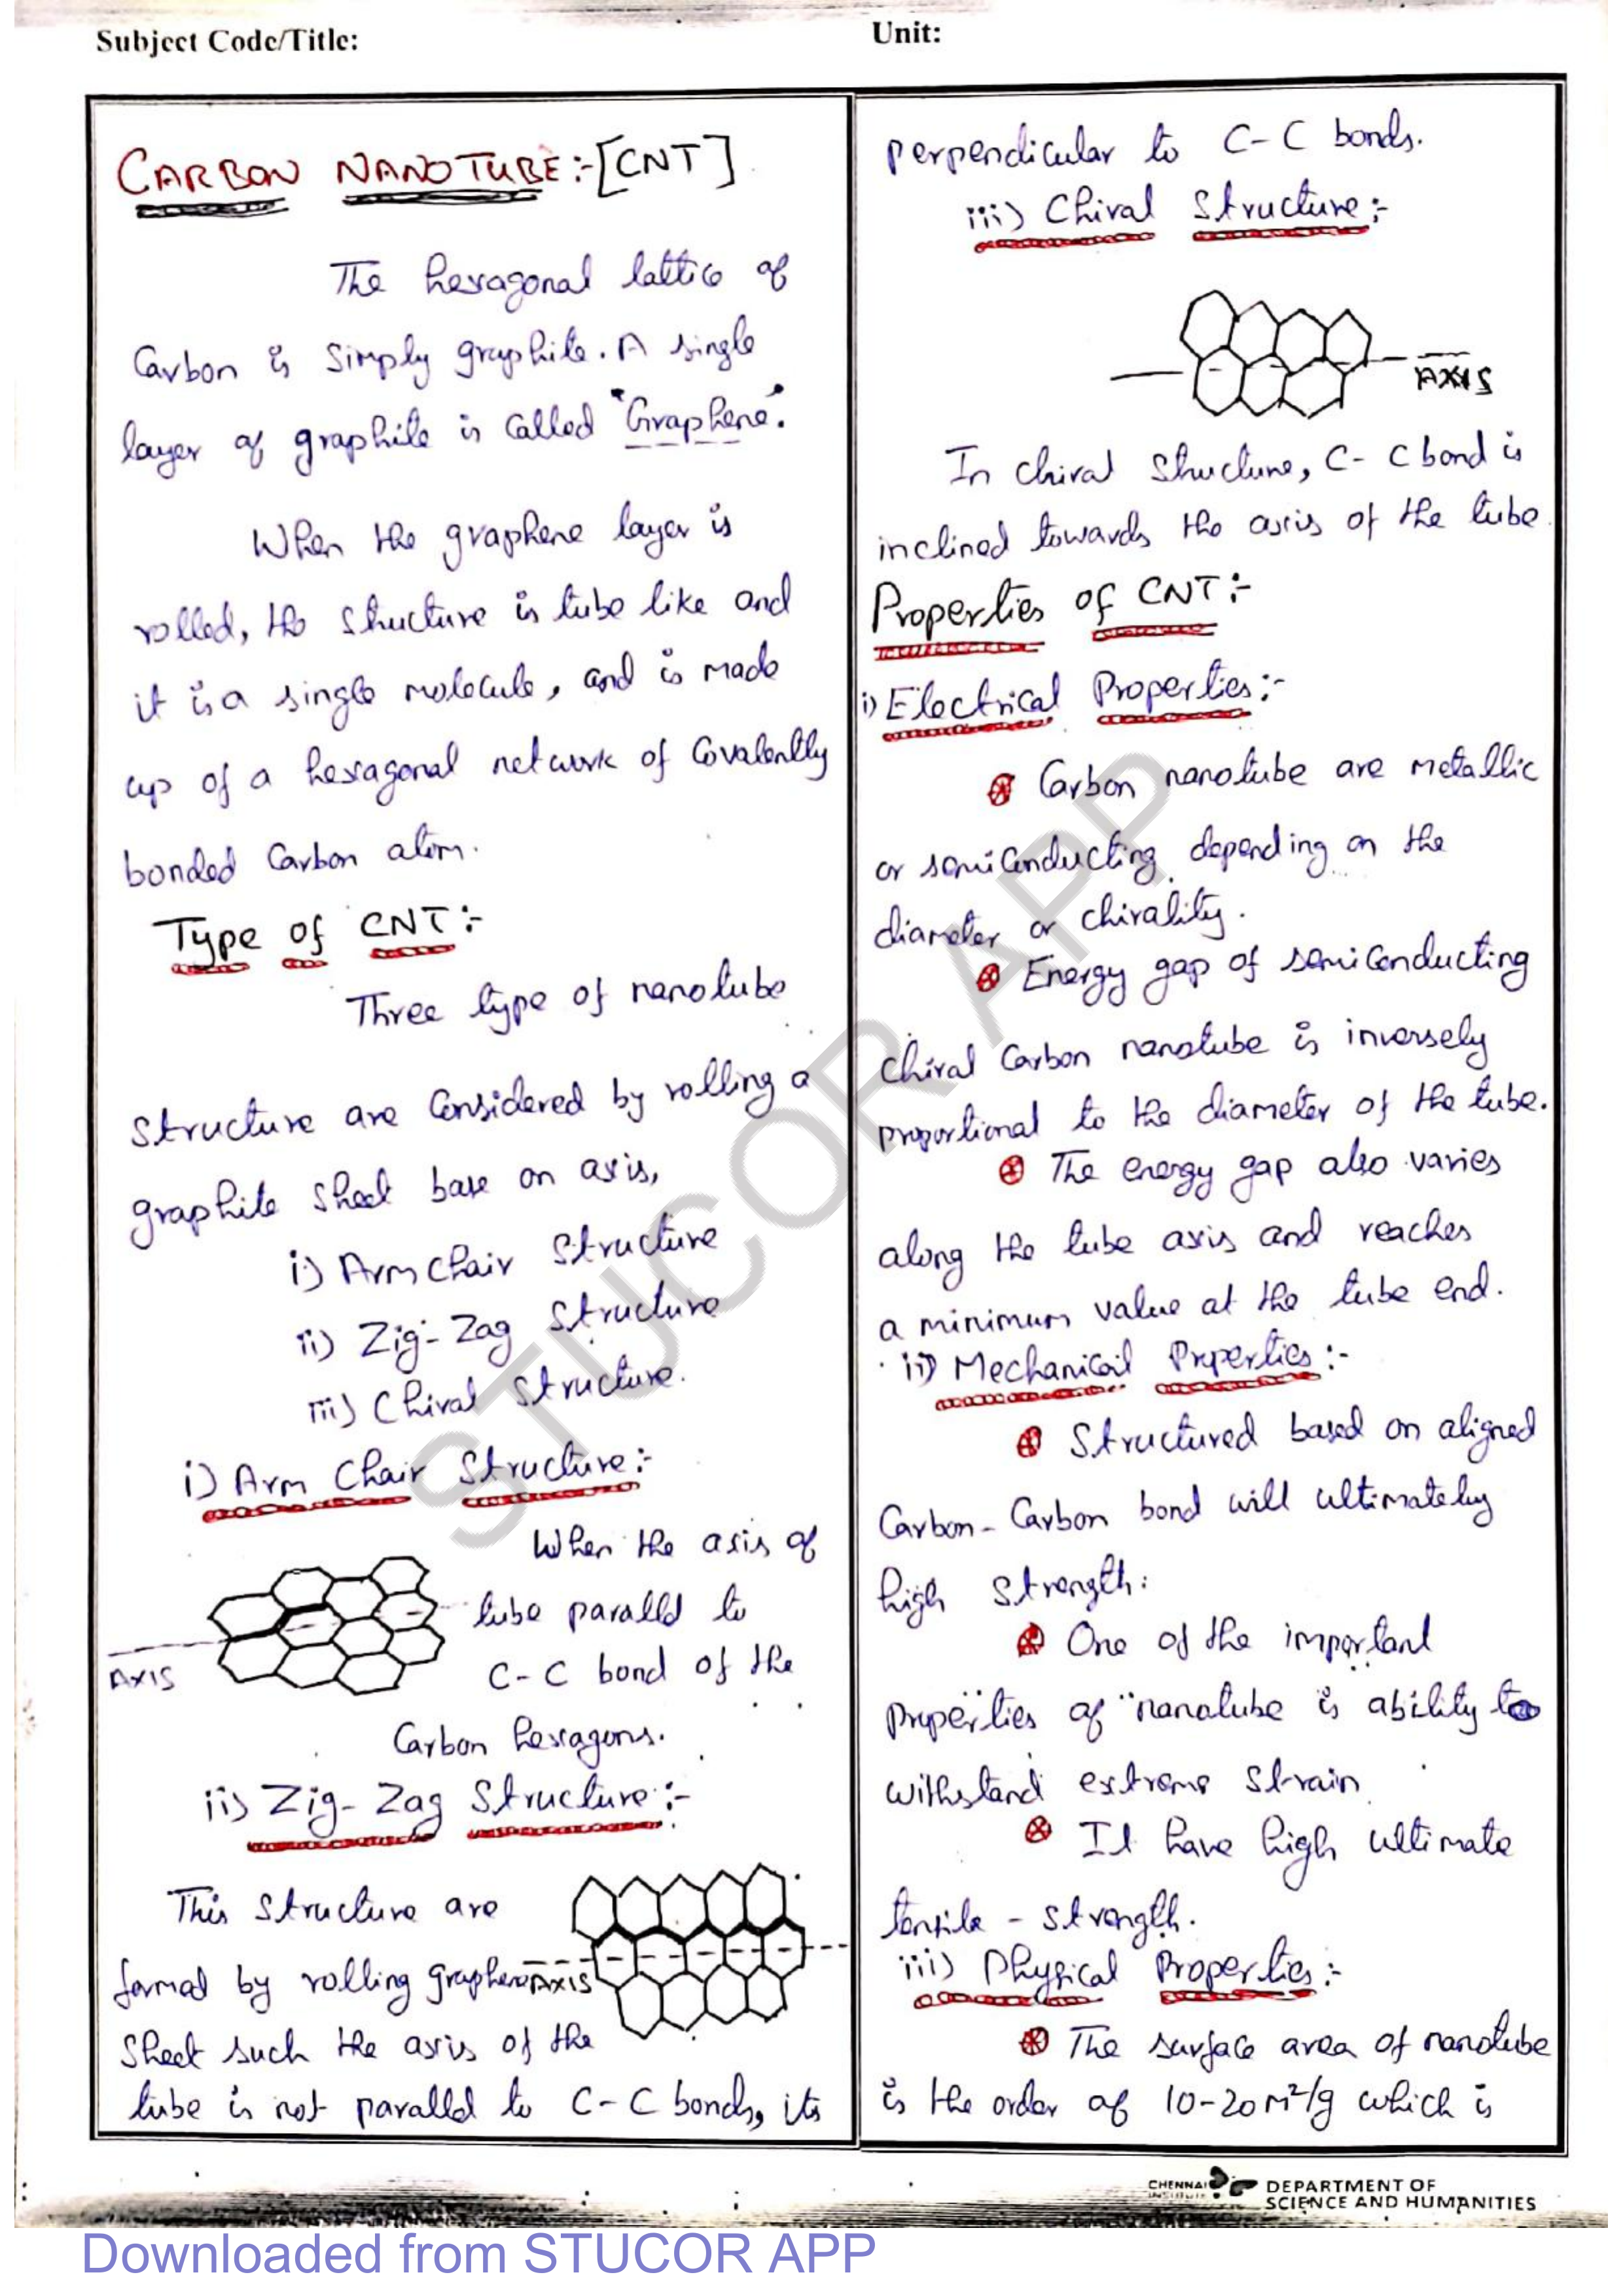 Subject Code/Title:
Unit:
CARBON NANOTUBE:-[CNT]
The hexagonal lattice of
Carbon is simply graphite. A single
layer of graphite is called "Graphene".
When the graphene layer is
rolled, the structure is tube like and
it is a single molecule, and is made
up of a hexagonal network of Covalently
bonded Carbon atom.
Type of CNT:-
Three type of nanotube
structure are Considered by rolling a
graphite sheet base on axis,
i) Arm chair Structure
ii) Zig-Zag Structure
iii) Chiral Structure.
i) Arm Chair Structure:-
When the axis of
tube parallel to
C-C bond of the
AXIS
Carbon hexagons.
ii) Zig-Zag Structure:-
This Structure are
formed by rolling graphene
AXIS
sheet such the axis of the
tube is not parallel to C-C bonds, its
perpendicular to C-C bonds.
iii) Chiral Structure:-
AXIS
In chiral structure, C-C bond is
inclined towards the axis of the tube
Properties of CNT:-
i) Electrical Properties:-
Carbon nanotube are metallic
or semiconducting depending on the
diameter or chirality.
Energy gap of semiconducting
chiral Carbon nanotube is inversely
proportional to the diameter of the tube.
The energy gap also varies
along the tube axis and reaches
a minimum value at the tube end.
ii) Mechanical Properties:-
Structured based on aligned
Carbon-Carbon bond will ultimately
high strength.
One of the important
properties of nanotube is ability to
withstand extreme strain
It have high ultimate
tensile - strength.
iii) Physical Properties:-
The surface area of nanotube
is the order of 10-20 m²/g which is
STUCOR APP
CHENNAI
INSTITUTE
DEPARTMENT OF
SCIENCE AND HUMANITIES
Downloaded from STUCOR APP